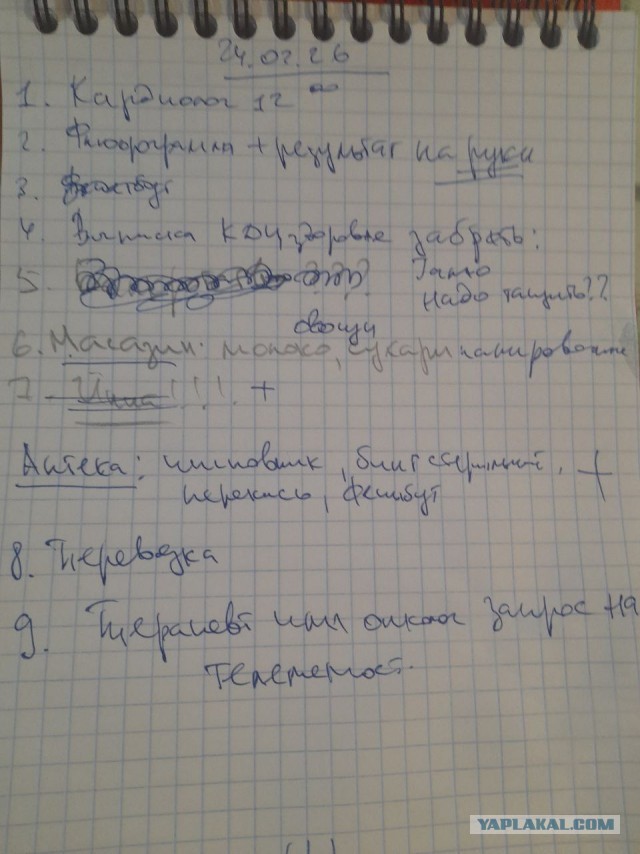 24.02.26
1. Кардиолог 12 00
2. Флюорограмма + результат на руки
3.
4. Выписка КДЦ здоровье забрать:
5. ??? Гамно
надо тащить??
овощи
6. Магазин: молоко, сухари панировочные
7. !!! +
Аптека: шиповник, бинт стерильный, +
перекись, фенибут
8. Перевозка
9. Терапевт или онколог запрос на
телемост.
YAPLAKAL.COM